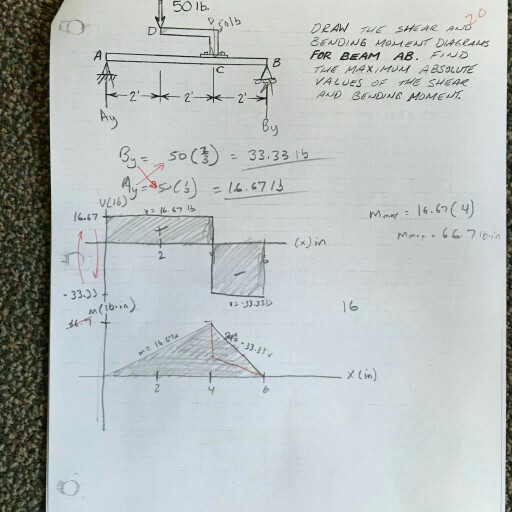 50 lb.
20
D
A
C
B
2'
2'
2'
Ay
By
DRAW THE SHEAR AND
BENDING MOMENT DIAGRAMS
FOR BEAM AB. FIND
THE MAXIMUM ABSOLUTE
VALUES OF THE SHEAR
AND BENDING MOMENT.
By = 50 (2/3) = 33.33 lb
Ay = 50 (1/3) = 16.67 lb
V(lb)
16.67
V = 16.67 lb
+
2
6
(x) in
-
-33.33
V = -33.33 lb
M max = 16.67(4)
M max = 66.7 lb·in
M (lb·in)
16
M = 16.67x
-33.33x
2
4
6
X (in)